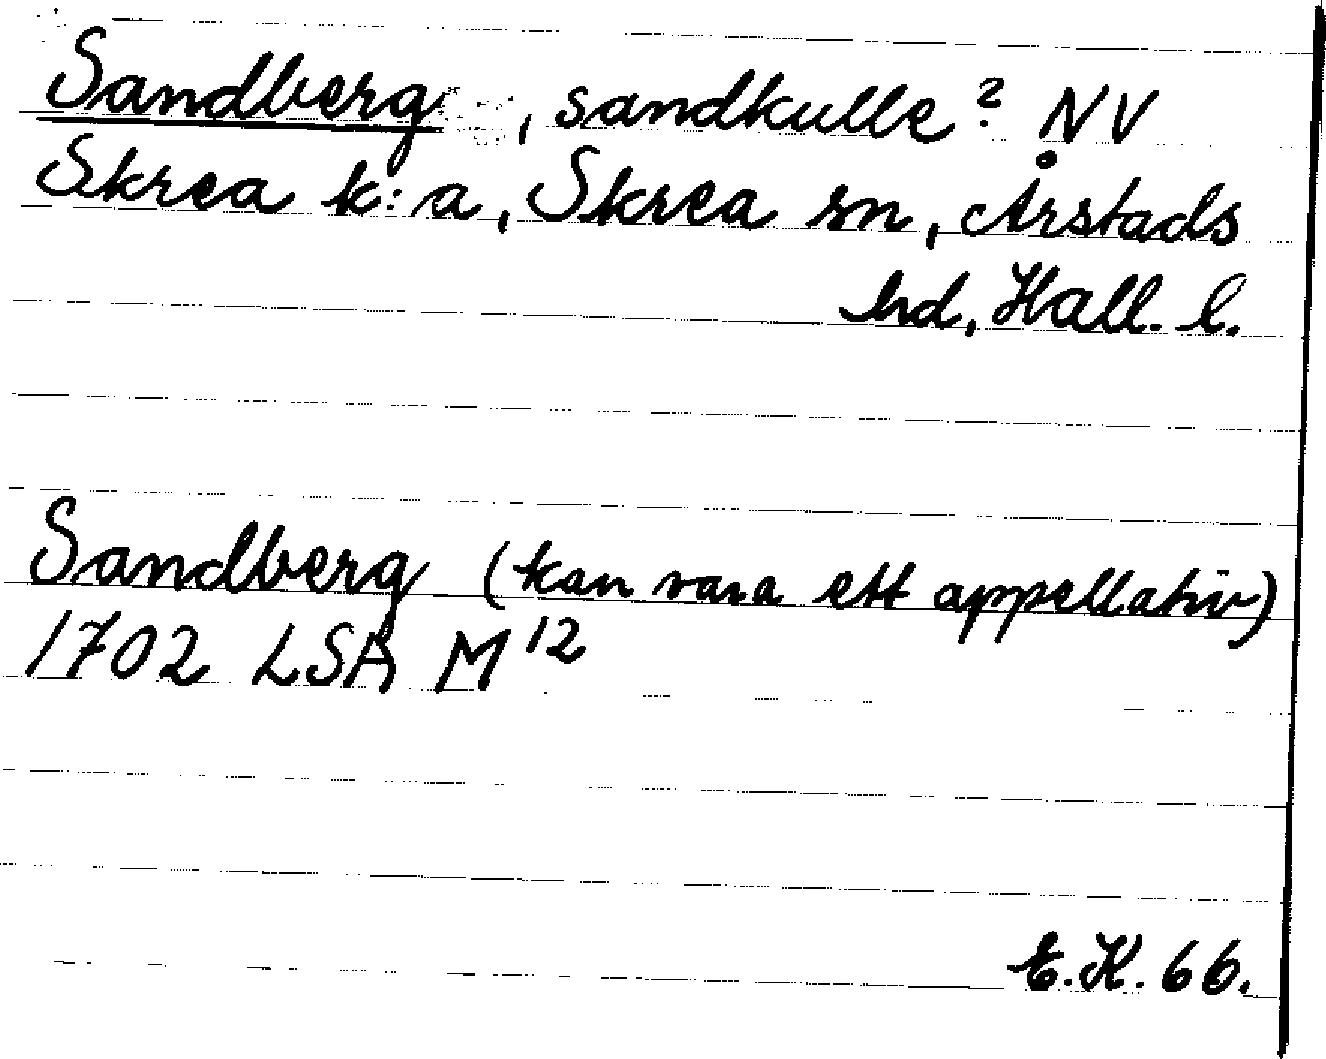 Sandberg, sandkulle? NV
Skrea k:a, Skrea sn, Årstads
hd, Hall. l.
Sandberg (kan vara ett appellativ)
1702 LSA M 12
E.K. 66.